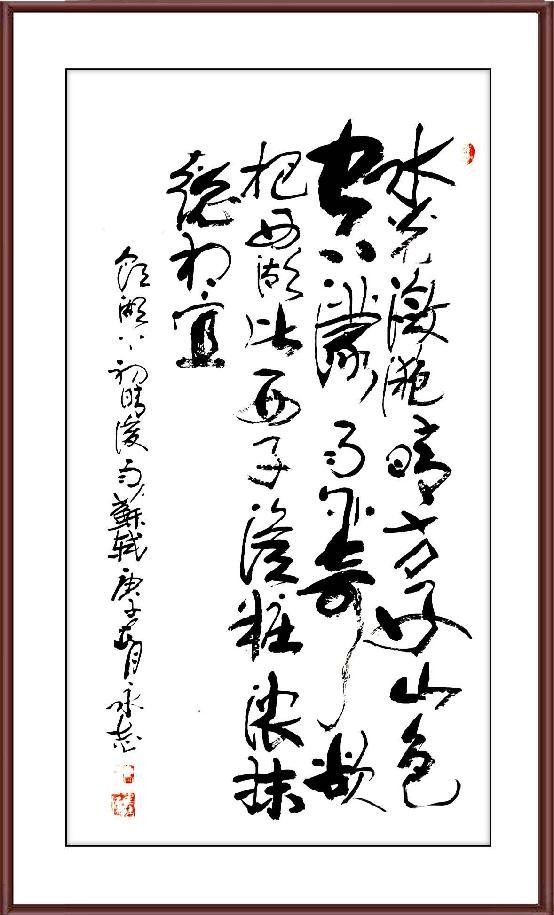 水光潋滟晴方好山色
空濛雨亦奇欲
把西湖比西子淡粧浓抹
總相宜
飲湖上初晴後雨蘇軾庚子月永志